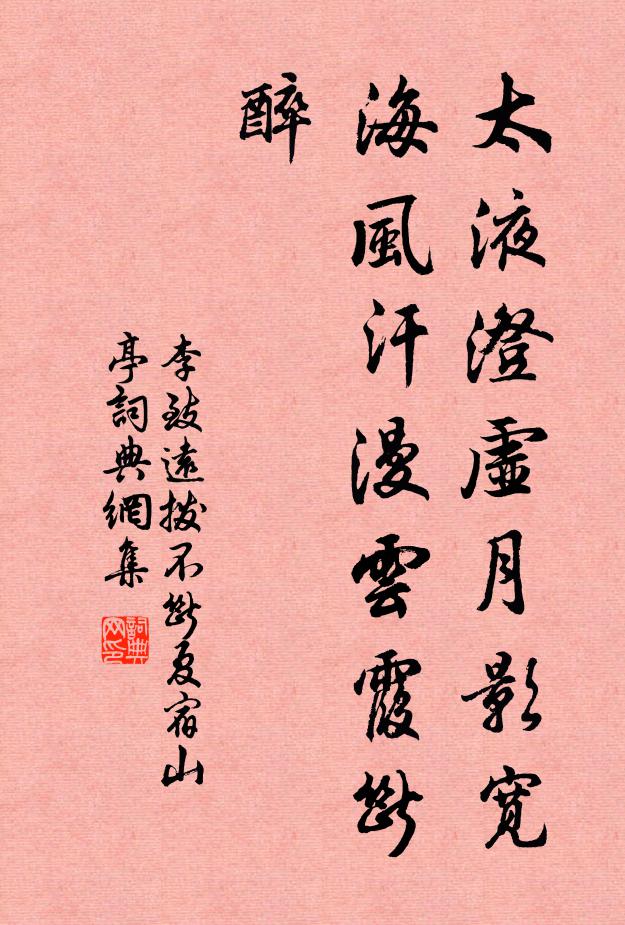 太液澄虛月影寬
海風汗漫雲霞斷
醉
李致遠撥不斷夏宿山
亭詞典網集
詞典
网印